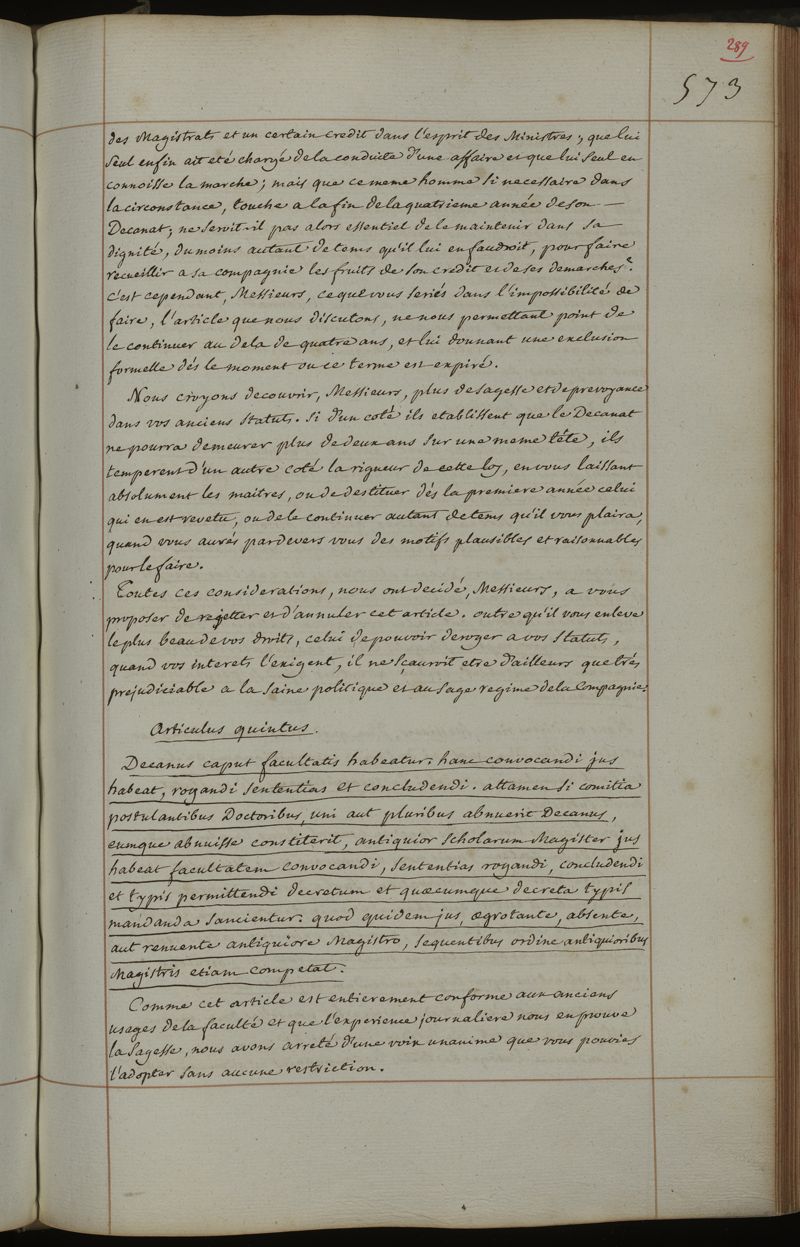 289
573
des Magistrats et un certain credit dans l'esprit des Ministres, que lui
seul enfin ait eté chargé de la conduite d'une affaire et que lui seul en
connoisse la marche; mais que ce meme homme si necessaire dans
la circonstance, touche a la fin de la quatrieme année de son —
Decanat; ne seroit-il pas alors essentiel de le maintenir dans sa
dignité, du moins autant de tems qu'il lui en faudroit, pour faire
recueillir a sa compagnie les fruits de son credit et de ses demarches?
C'est cependant, Messieurs, ce que vous seriés dans l'impossibilité de
faire, l'article que nous discutons, ne nous permettant point de
le continuer au dela de quatre ans, et lui donnant une exclusion
formelle dés le moment ou ce terme est expiré.
Nous croyons decouvrir, Messieurs, plus de sagesse et de prevoyance
dans vos anciens Statuts. Si d'un coté ils etablissent que le Decanat
ne pourra demeurer plus de deux ans sur une meme tête, ils
temperent d'un autre coté la rigueur de cette loy, en vous laissant
absolument les maitres, ou de destituer dés la premiere année celui
qui en est revetu, ou de le continuer autant de tems qu'il vous plaira,
quand vous aurés pardevers vous des motifs plausibles et raisonnables
pour le faire.
Toutes ces considerations, nous ont decidé, Messieurs, a vous
proposer de rejetter et d'annuler cet article. outre qu'il vous enleve
le plus beau de vos droits, celui de pouvoir deroger a vos Statuts,
quand vos interets l'exigent, il ne sçauroit etre d'ailleurs que trés
prejudiciable a la saine politique et au sage regime de la Compagnie.
Articulus quintus.
Decanus caput facultatis habeatur. hanc convocandi jus
habeat, rogandi sententias et concludendi. attamen si comitia
postulantibus Doctoribus, uni aut pluribus abnuerit Decanus,
eumque abnuisse constiterit, antiquior Scholarum Magister jus
habeat facultatem convocandi, sententias rogandi, concludendi
et typis permittendi decretum et quæcumque decreta typis
mandanda sancientur. quod quidem jus, ægrotante, absente,
aut renuente antiquiore Magistro, sequentibus ordine antiquioribus
Magistris etiam competat.
Comme cet article est entierement conforme aux anciens
usages de la faculté et que l'experience journaliere nous en prouve
la sagesse, nous avons arreté d'une voix unanime que vous pouviés
l'adopter sans aucune restriction.